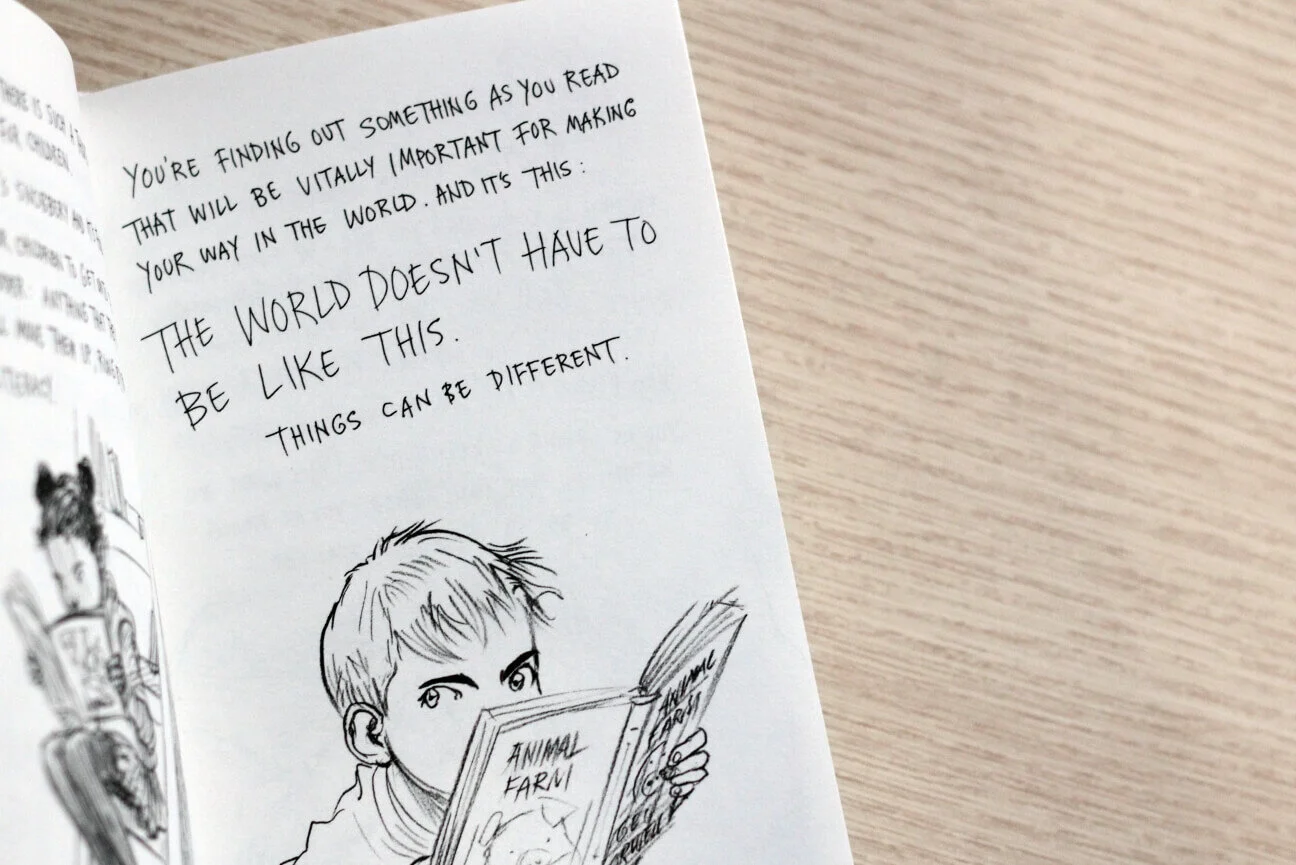 THERE IS SUCH A
OUR CHILDREN.
SNOBBERY AND IT'S
CHILDREN TO GET INTO
ANYTHING THAT
MOVE THEM UP, RUNG BY
LITERACY.
YOU'RE FINDING OUT SOMETHING AS YOU READ
THAT WILL BE VITALLY IMPORTANT FOR MAKING
YOUR WAY IN THE WORLD. AND IT'S THIS:
THE WORLD DOESN'T HAVE TO
BE LIKE THIS.
THINGS CAN BE DIFFERENT.
ANIMAL
FARM
ANIMAL
FARM
GEO
ORWELL